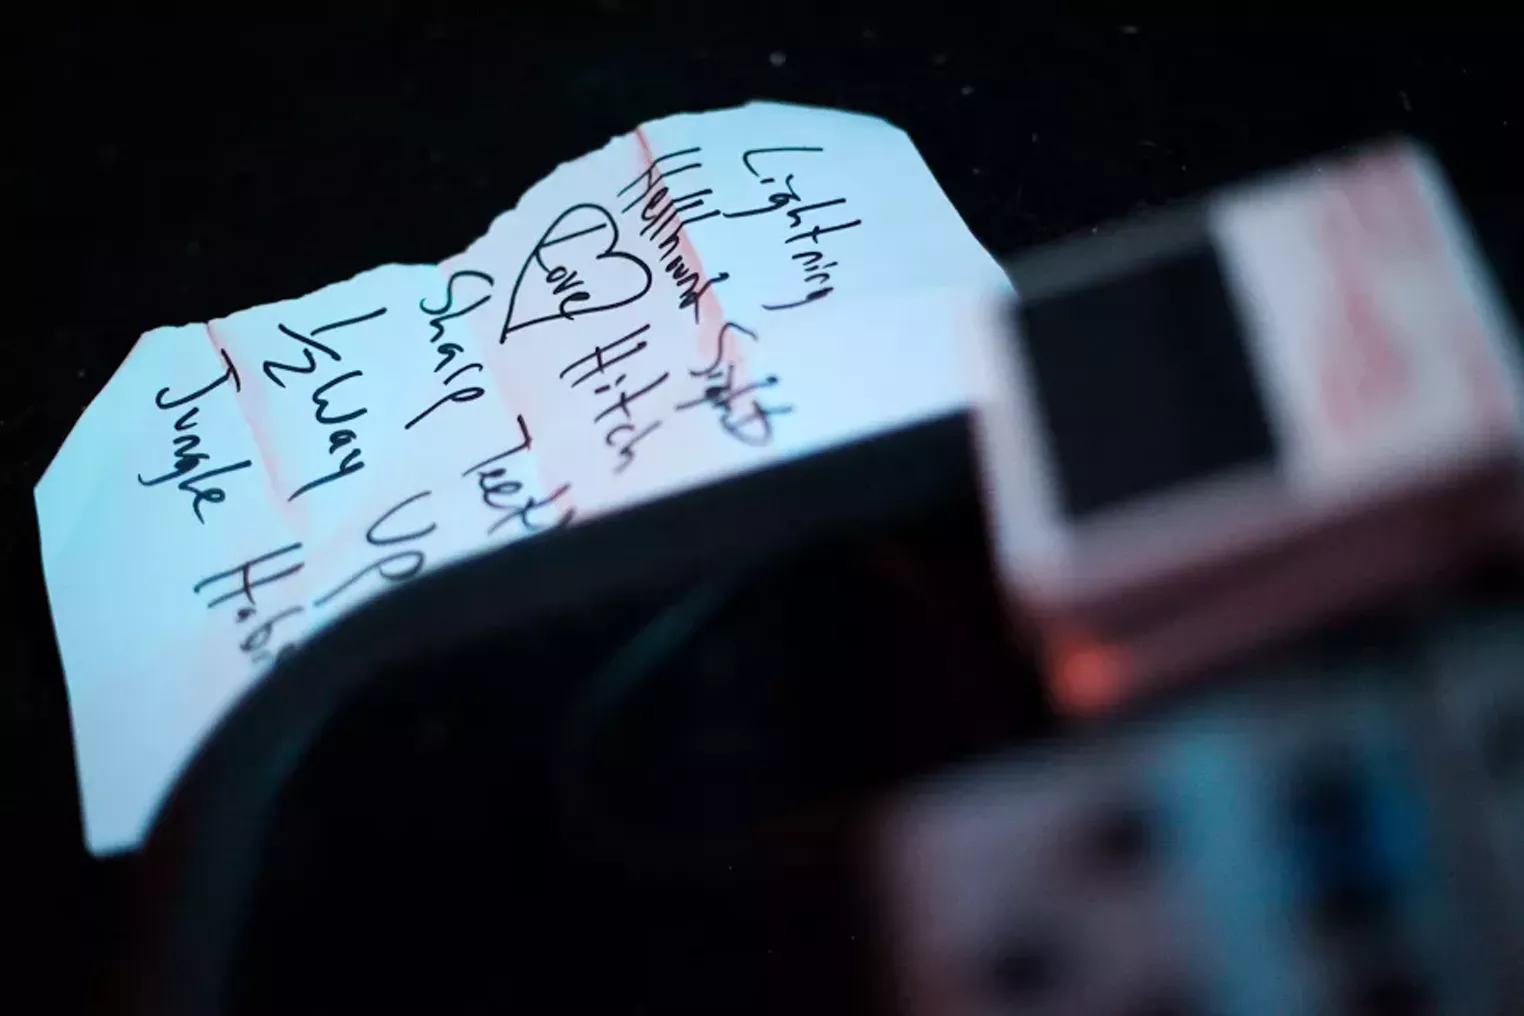 Lightning
Hellhound Sight
Love Hitch
Sharp Teeth
1/2 Way Up
Jungle